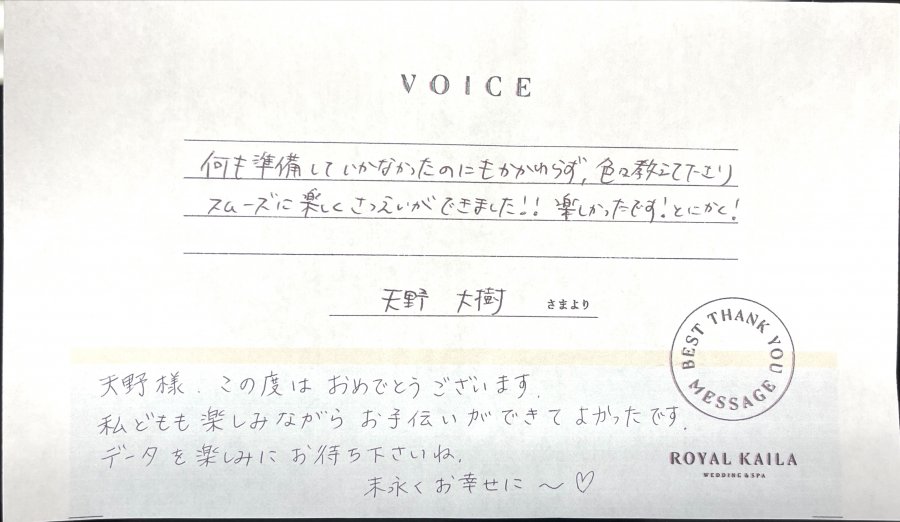 VOICE
何も準備していかなかったのにもかかわらず、色々教えて下さり
スムーズに楽しくさつえいができました!! 楽しかったです!とにかく!
天野 大樹 さまより
BEST THANK YOU MESSAGE
天野様、この度は おめでとうございます。
私どもも楽しみながら お手伝いができて よかったです。
データを楽しみに お待ち下さいね。
末永くお幸せに〜♡
ROYAL KAILA
WEDDING & SPA